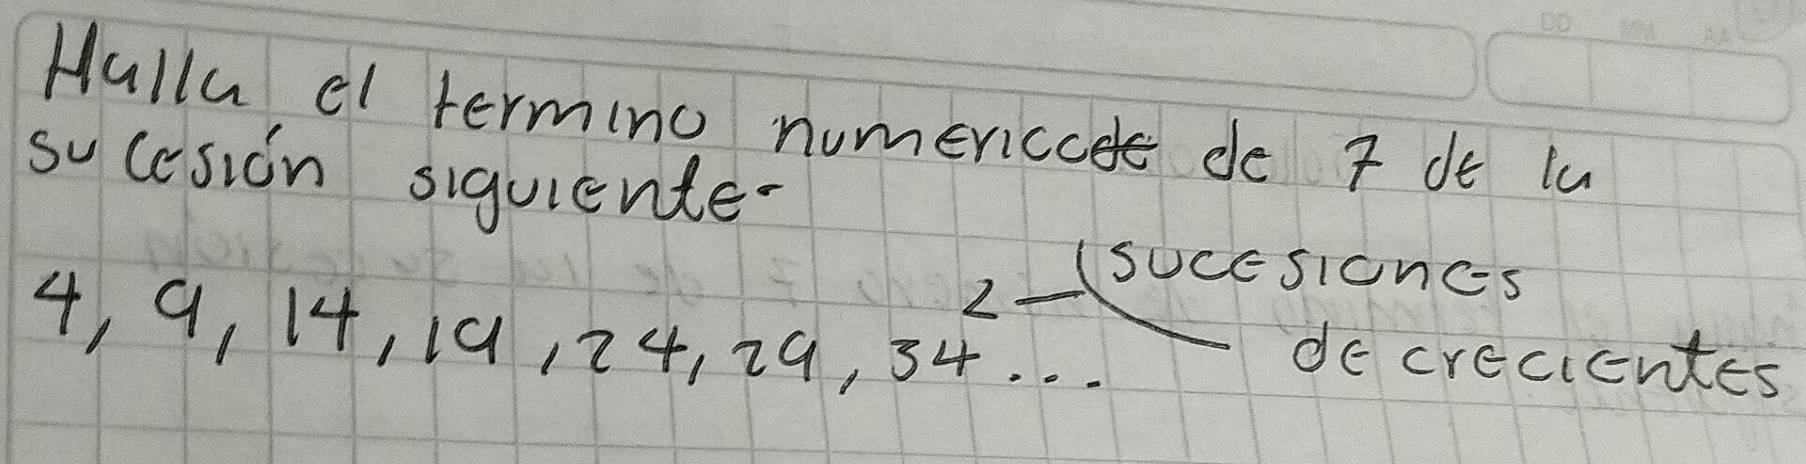 Halla el termino numerico de 7 de la
sucesión siguiente-
4, 9, 14, 19, 24, 29, 34... 2 - sucesiones
decrecientes
DD MM AA